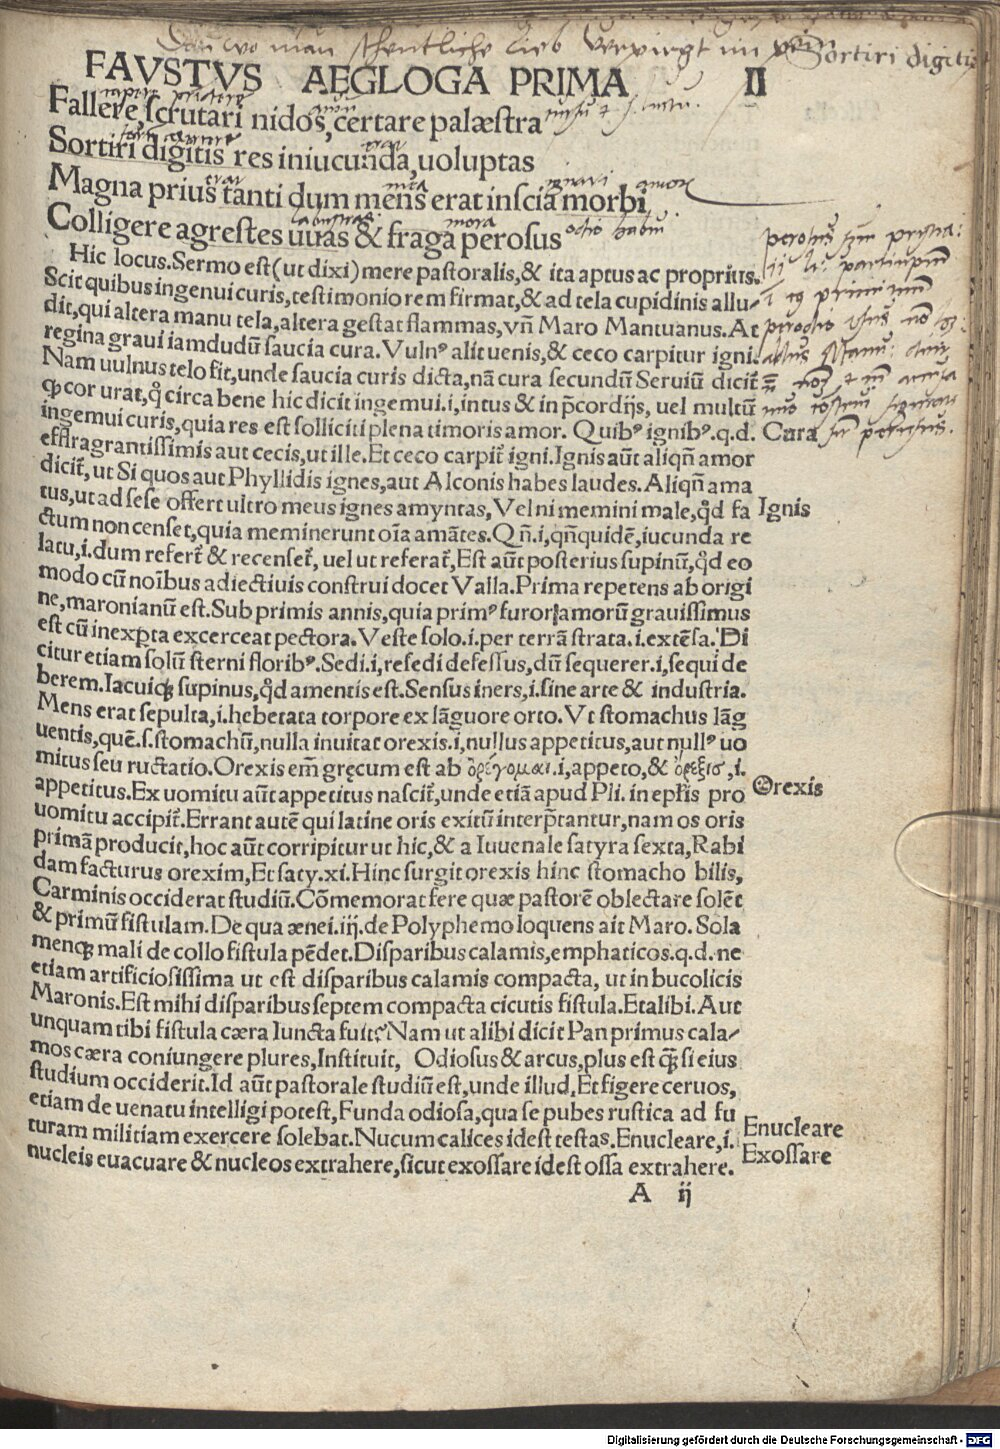 Sortiri digitis
FAVSTVS AEGLOGA PRIMA II
Fallere, scrutari nidos, certare palæstra
Sortiri digitis res iniucunda, uoluptas
Magna prius tanti dum mens erat inscia morbi
Colligere agrestes uuas & fraga perosus
Hic locus. Sermo est (ut dixi) mere pastoralis, & ita aptus ac proprius.
Scit quibus ingenui curis, testimonio rem firmat, & ad tela cupidinis allu-
dit, qui altera manu tela, altera gestat flammas, vñ Maro Mantuanus. At
regina graui iamdudũ saucia cura. Vulnꝰ alit uenis, & ceco carpitur igni.
Nam uulnus telo fit, unde saucia curis dicta, nã cura secundũ Seruiũ dicit̃
ꝙ cor urat, q̊ circa bene hic dicit ingemui. i, intus & in p̃cordijs, uel multũ
ingemui curis, quia res est solliciti plena timoris amor. Quibꝰ ignibꝰ. q.d. Cura
efflragrantissimis aut cecis, ut ille. Et ceco carpit̃ igni. Ignis aũt aliqñ amor
dicit̃, ut Si quos aut Phyllidis ignes, aut Alconis habes laudes. Aliqñ ama
tus, ut ad sese offert ultro meus ignes amyntas, Vel ni memini male, qd̊ fa Ignis
ctum non censet, quia meminerunt oĩa amãtes. Qñ. i, qñquidẽ, iucunda re
latu, i. dum refert̃ & recenset̃, uel ut referat̃, Est aũt posterius supinũ, qd̊ eo
modo cũ noĩbus adiectiuis construi docet Valla. Prima repetens ab origi
ne, maronianũ est. Sub primis annis, quia primꝰ furor amorũ grauissimus
est cũ inexp̱ta excerceat pectora. Veste solo. i. per terrã strata. i. extẽsa. Di
citur etiam solũ sterni floribꝰ. Sedi. i, resedi defessus, dũ sequerer. i, sequi de
berem. Iacuiqꝫ supinus, qd̊ amentis est. Sensus iners, i. sine arte & industria.
Mens erat sepulta, i. hebetata torpore ex lãguore orto. Vt stomachus lãg
uentis, quẽ. s. stomachũ, nulla inuitat orexis. i, nullus appetitus, aut nullꝰ uo
mitus seu ructatio. Orexis em̃ gręcum est ab ὀρέγομαι. i, appeto, & ὀρεξισ, i.
appetitus. Ex uomitu aũt appetitus nascit̃, unde etiã apud Pli. in epl̃is pro Orexis
uomitu accipit̃. Errant autẽ qui latine oris exitũ interp̃tantur, nam os oris
primã producit, hoc aũt corripitur ut hic, & a Iuuenale satyra sexta, Rabi
dam facturus orexim, Et saty. xi. Hinc surgit orexis hinc stomacho bilis,
Carminis occiderat studiũ. Cõmemorat fere quæ pastorẽ oblectare solẽt
& primũ fistulam. De qua ænei. iij. de Polyphemo loquens ait Maro. Sola
menqꝫ mali de collo fistula pẽdet. Disparibus calamis, emphaticos. q.d. ne
etiam artificiosissima ut est disparibus calamis compacta, ut in bucolicis
Maronis. Est mihi disparibus septem compacta cicutis fistula. Et alibi. Aut
unquam tibi fistula cæra Iuncta fuit? Nam ut alibi dicit Pan primus cala-
mos cæra coniungere plures, Instituit, Odiosus & arcus, plus est q̃ꝫ si eius
studium occiderit. Id aũt pastorale studiũ est, unde illud, Et figere ceruos,
etiam de uenatu intelligi potest, Funda odiosa, qua se pubes rustica ad fu
turam militiam exercere solebat. Nucum calices id est testas. Enucleare, i. Enucleare
nucleis euacuare & nucleos extrahere, sicut exossare id est ossa extrahere. Exossare
A ij
Digitalisierung gefördert durch die Deutsche Forschungsgemeinschaft - DFG